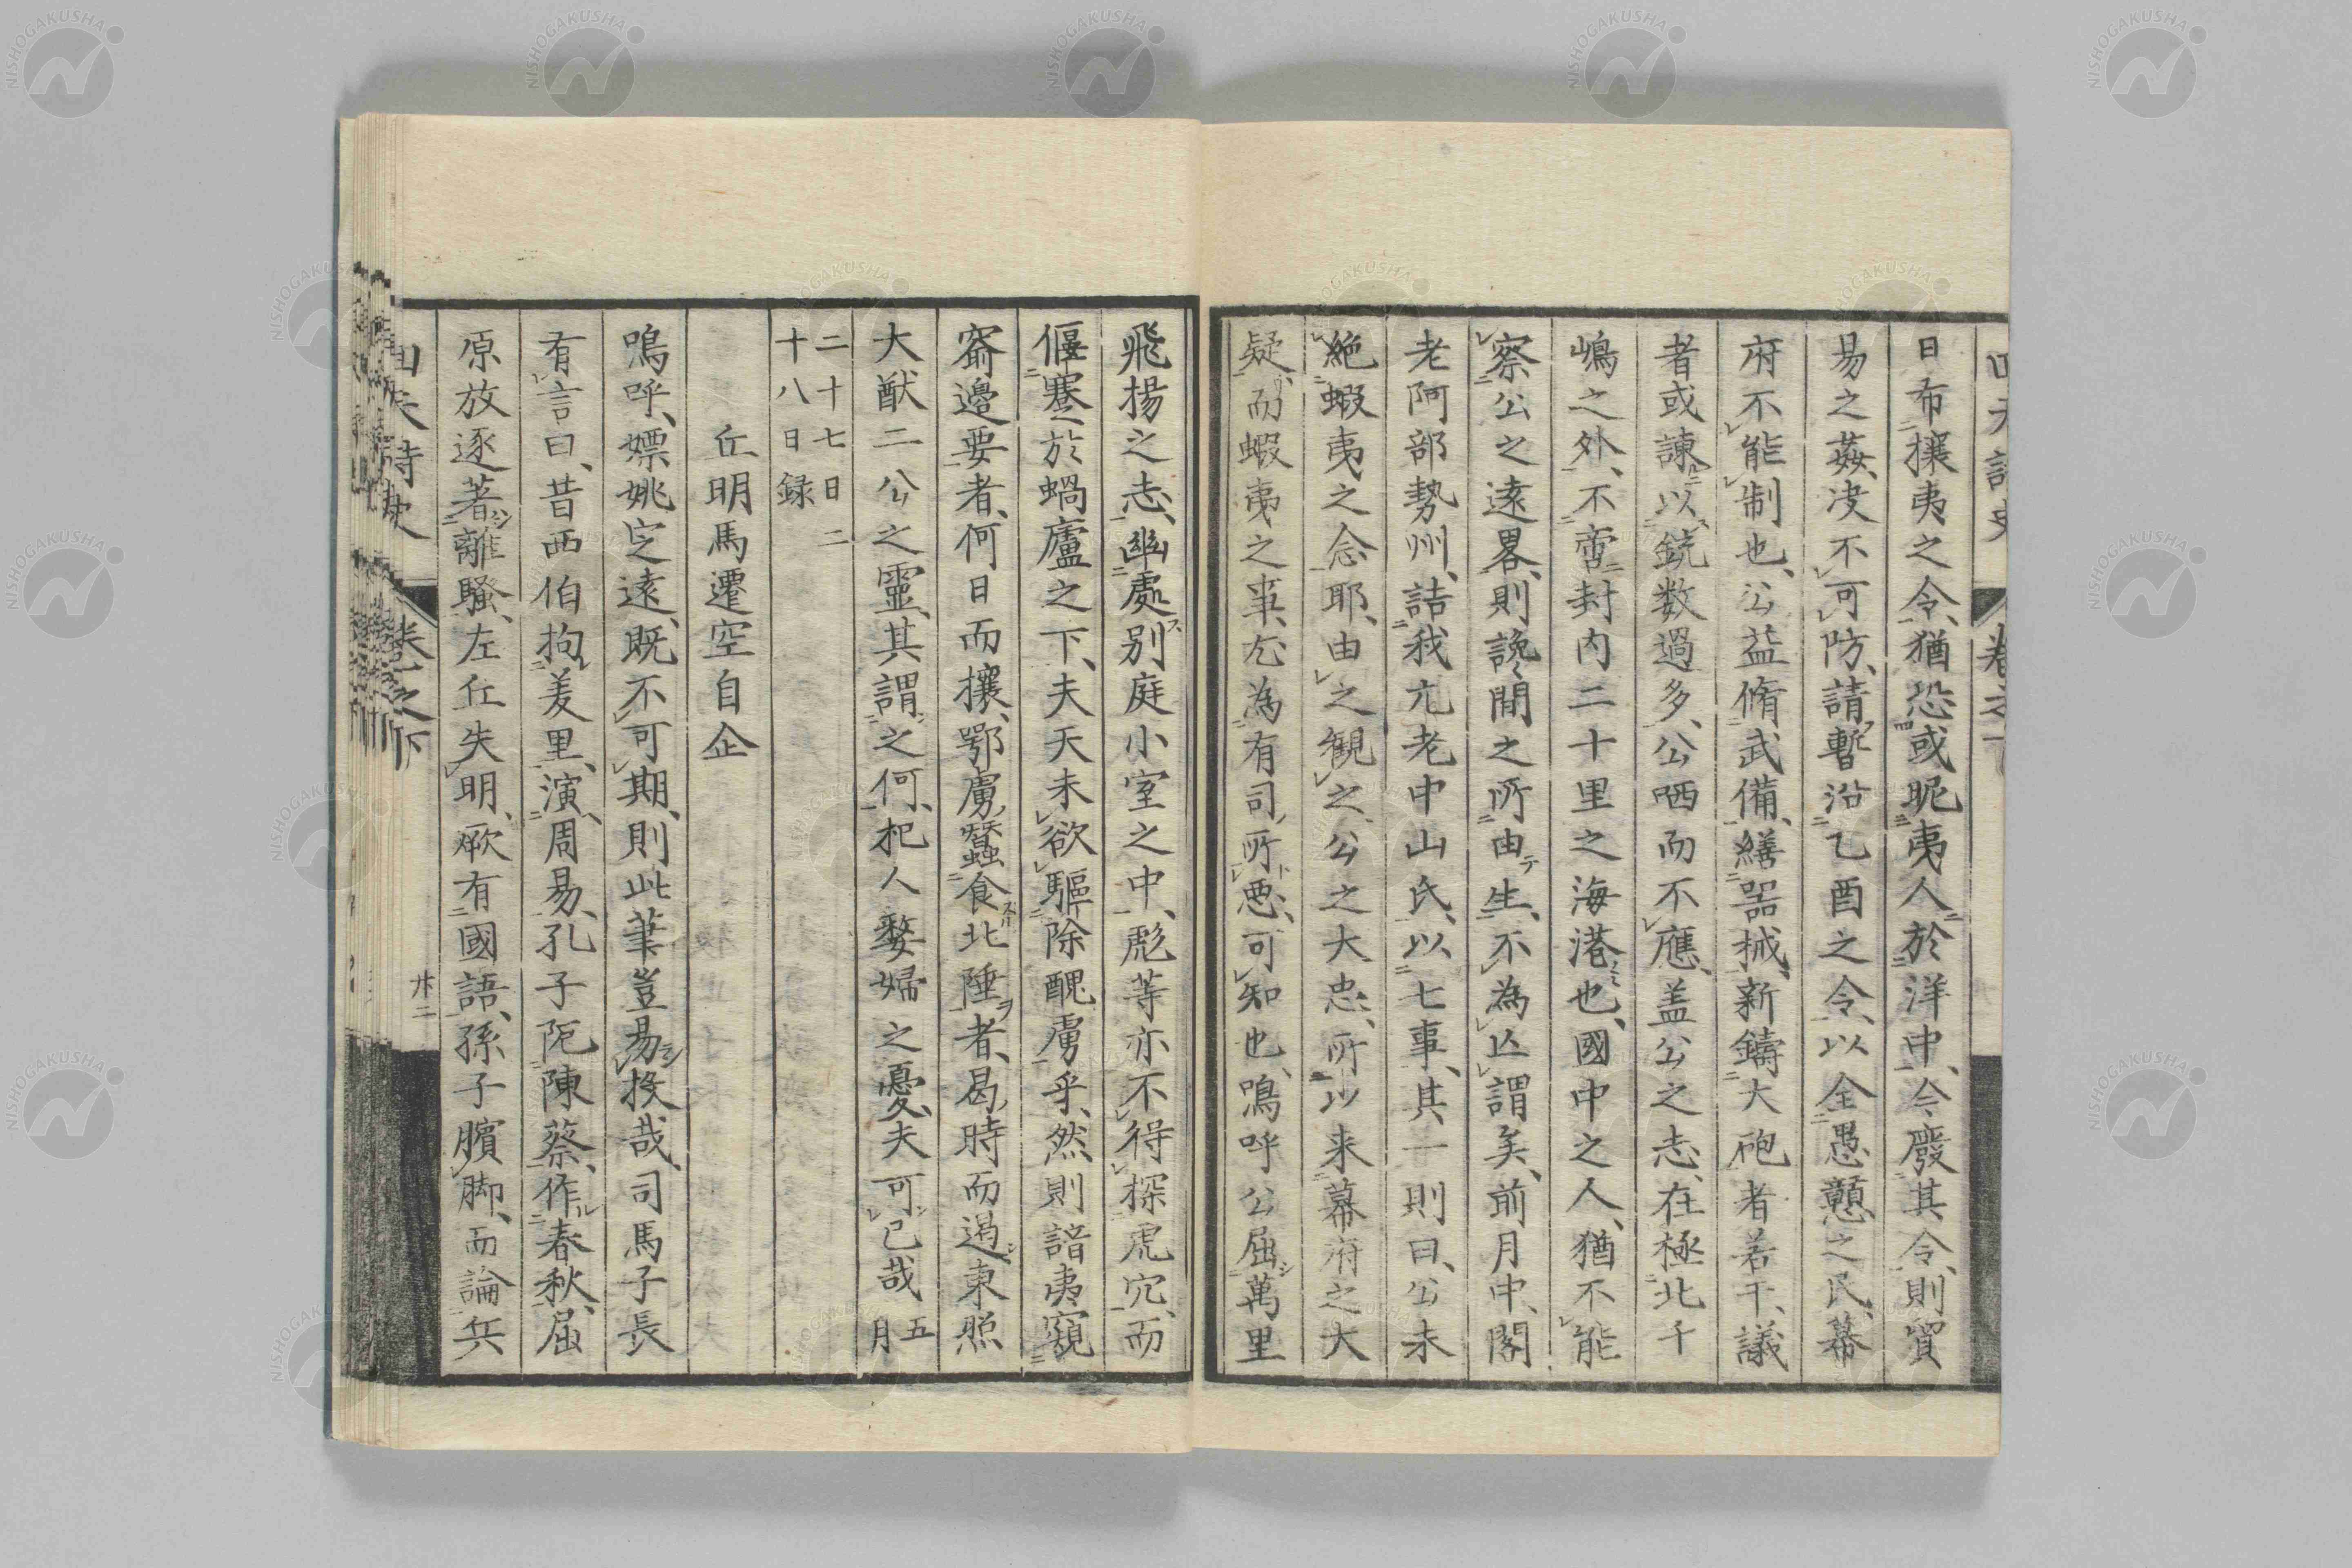 日布攘夷之令、猶恐或昵夷人於洋中、今廢其令、則貿
易之姦、决不可防、請暫沿乙酉之令、以全愚戇之民、幕
府不能制也、公益脩武備、繕器械、新鑄大砲者若干、議
者或諫以銃数過多、公哂而不應、盖公之志、在極北千
嶋之外、不啻封内二十里之海港也、國中之人、猶不能
察公之遠畧、則讒間之所由生、不為亾謂矣、前月中、閣
老阿部勢州、詰我亢老中山氏、以七事、其一則曰、公未
絶蝦夷之念耶、由之観之、公之大忠、所以来幕府之大
疑、而蝦夷之事、尤為有司所悪、可知也、鳴呼公屈萬里
飛揚之志、幽處别庭小室之中、彪等亦不得探虎穴、而
偃蹇於蝸廬之下、夫天未欲驅除醜虜乎、然則諳夷窺
窬邉要者、何日而攘、鄂虜蠶食北陲者、曷時而遏、東照
大猷二公之靈、其謂之何、杞人嫠婦之憂、夫可已哉 五月
二十七日二
十八日録
丘明馬遷空自企
鳴呼、嫖姚定遠、既不可期、則此筆豈易投哉、司馬子長
有言曰、昔西伯拘羑里、演周易、孔子阨陳蔡、作春秋、屈
原放逐著離騷、左丘失明、厥有國語、孫子臏脚、而論兵
卷之下
廾二
NISHOGAKUSHA